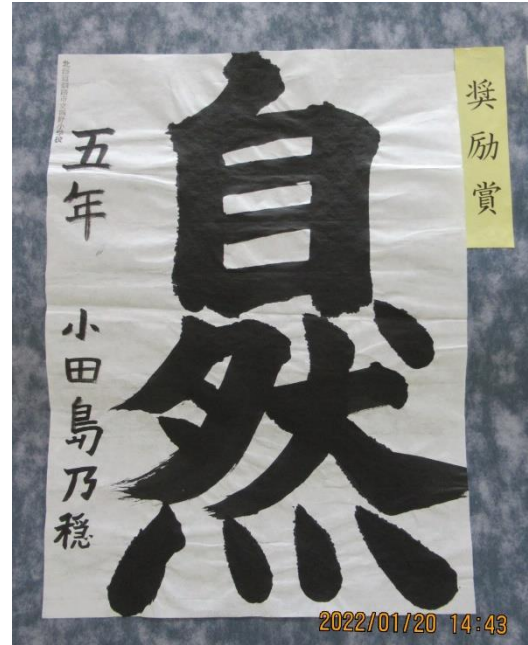 奨励賞
自然
五年 小田島乃穏
2022/01/20 14:43